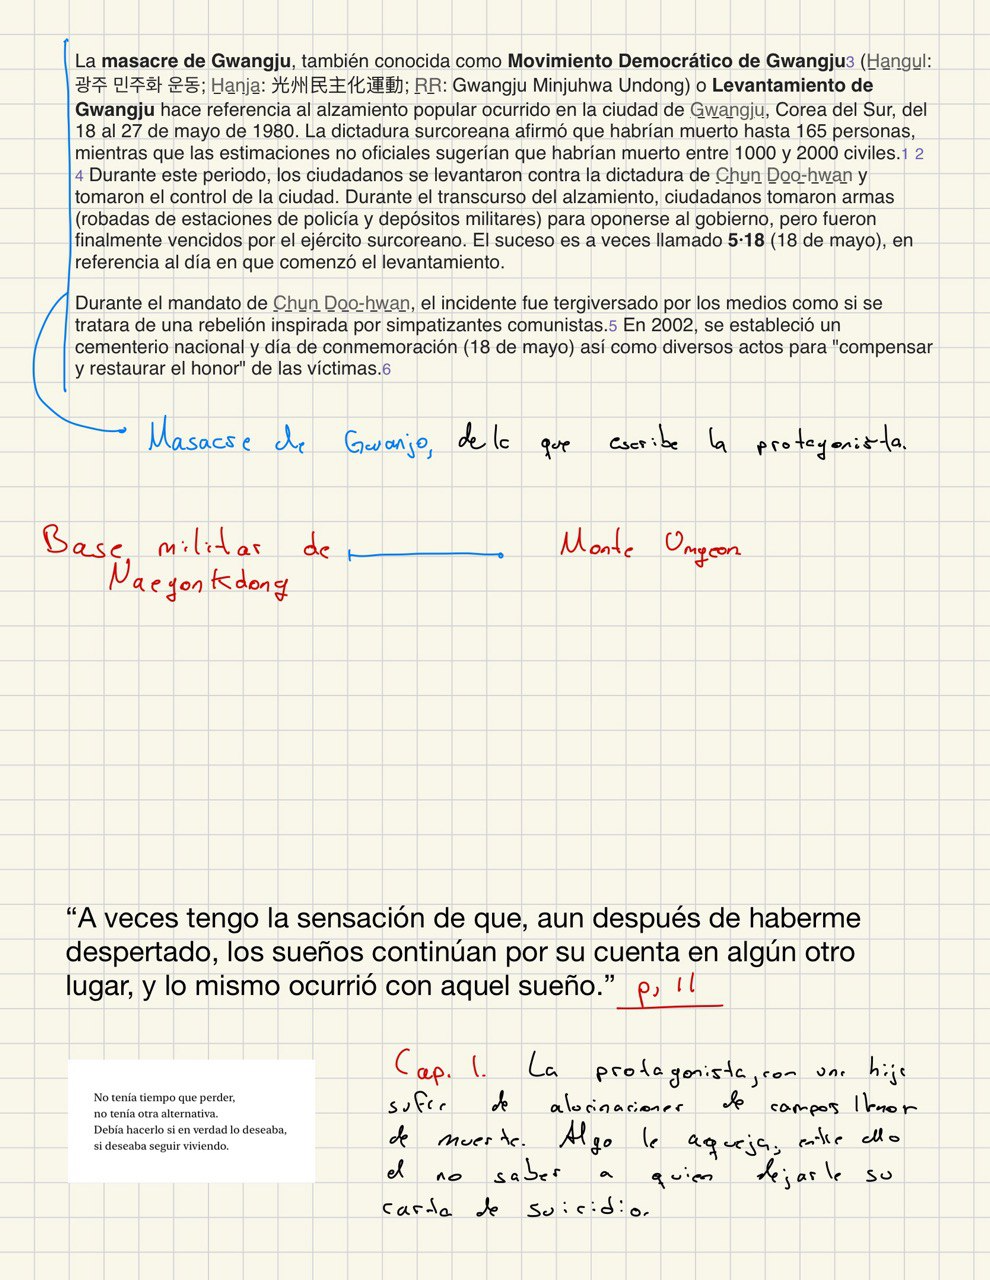 La masacre de Gwangju, también conocida como Movimiento Democrático de Gwangju3 (Hangul:
광주 민주화 운동; Hanja: 光州民主化運動; RR: Gwangju Minjuhwa Undong) o Levantamiento de
Gwangju hace referencia al alzamiento popular ocurrido en la ciudad de Gwangju, Corea del Sur, del
18 al 27 de mayo de 1980. La dictadura surcoreana afirmó que habrían muerto hasta 165 personas,
mientras que las estimaciones no oficiales sugerían que habrían muerto entre 1000 y 2000 civiles.1 2
4 Durante este periodo, los ciudadanos se levantaron contra la dictadura de Chun Doo-hwan y
tomaron el control de la ciudad. Durante el transcurso del alzamiento, ciudadanos tomaron armas
(robadas de estaciones de policía y depósitos militares) para oponerse al gobierno, pero fueron
finalmente vencidos por el ejército surcoreano. El suceso es a veces llamado 5·18 (18 de mayo), en
referencia al día en que comenzó el levantamiento.
Durante el mandato de Chun Doo-hwan, el incidente fue tergiversado por los medios como si se
tratara de una rebelión inspirada por simpatizantes comunistas.5 En 2002, se estableció un
cementerio nacional y día de conmemoración (18 de mayo) así como diversos actos para "compensar
y restaurar el honor" de las víctimas.6
Masacre de Gwanjo, de la que escribe la protagonista.
Base militar de Monte Umyeon
Naegonkdong
“A veces tengo la sensación de que, aun después de haberme
despertado, los sueños continúan por su cuenta en algún otro
lugar, y lo mismo ocurrió con aquel sueño.” p, 11
No tenía tiempo que perder,
no tenía otra alternativa.
Debía hacerlo si en verdad lo deseaba,
si deseaba seguir viviendo.
Cap. 1. La protagonista, con una hija
sufre de alucinaciones de campos llenos
de muerte. Algo le aqueja, entre ello
el no saber a quien dejarle su
carta de suicidio.